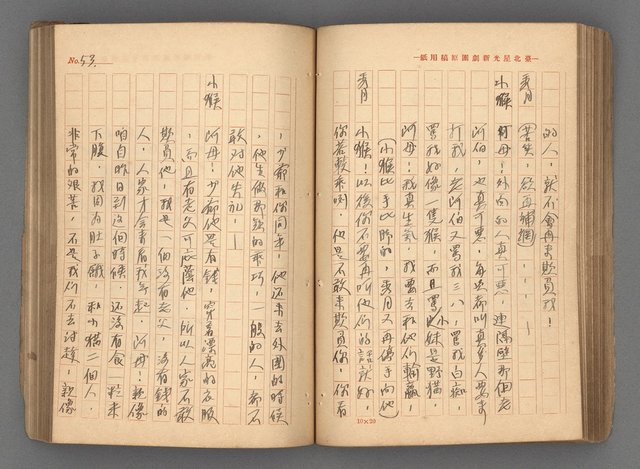 臺北星光新劇團原稿用紙
的人,就不會再來欺員我!
(害笑,継再補網)
小猴 阿母!外面的人真可惡!連隔壁那個老
阿伯,也真可惡,每次都叫真多人要來
打我,老阿伯又罵我三八,罵我白痴,
罵我好像一隻猴,而且罵小妹是野猫,
阿母!我真生氣,我要去和他們輸贏,
(小猴比手比脚,秀月又再伸手向他)
秀月 小猴!以後你不要再听他們的話就好,
你若較乖咧,他是不敢來欺員你,你看
No. 53.
,少爺和你同来,他还未去外国的時候
,他生做那麼的乖巧,一般的人,都不
敢对他失礼,——
小猴 阿母!少爺他是有錢,穿着漂亮的衣服
,而且有老父可庇蔭他,所以人家不敢
欺員他,我是一個沒有老父,沒有錢的
人,人家才会看我不起,阿母!親像
咱自昨日到这個時候,还沒有食一粒米
下腹,我因為肚子餓,和小猫二個人,
非常的艰苦,不是我們不去討趁,親像
10×20